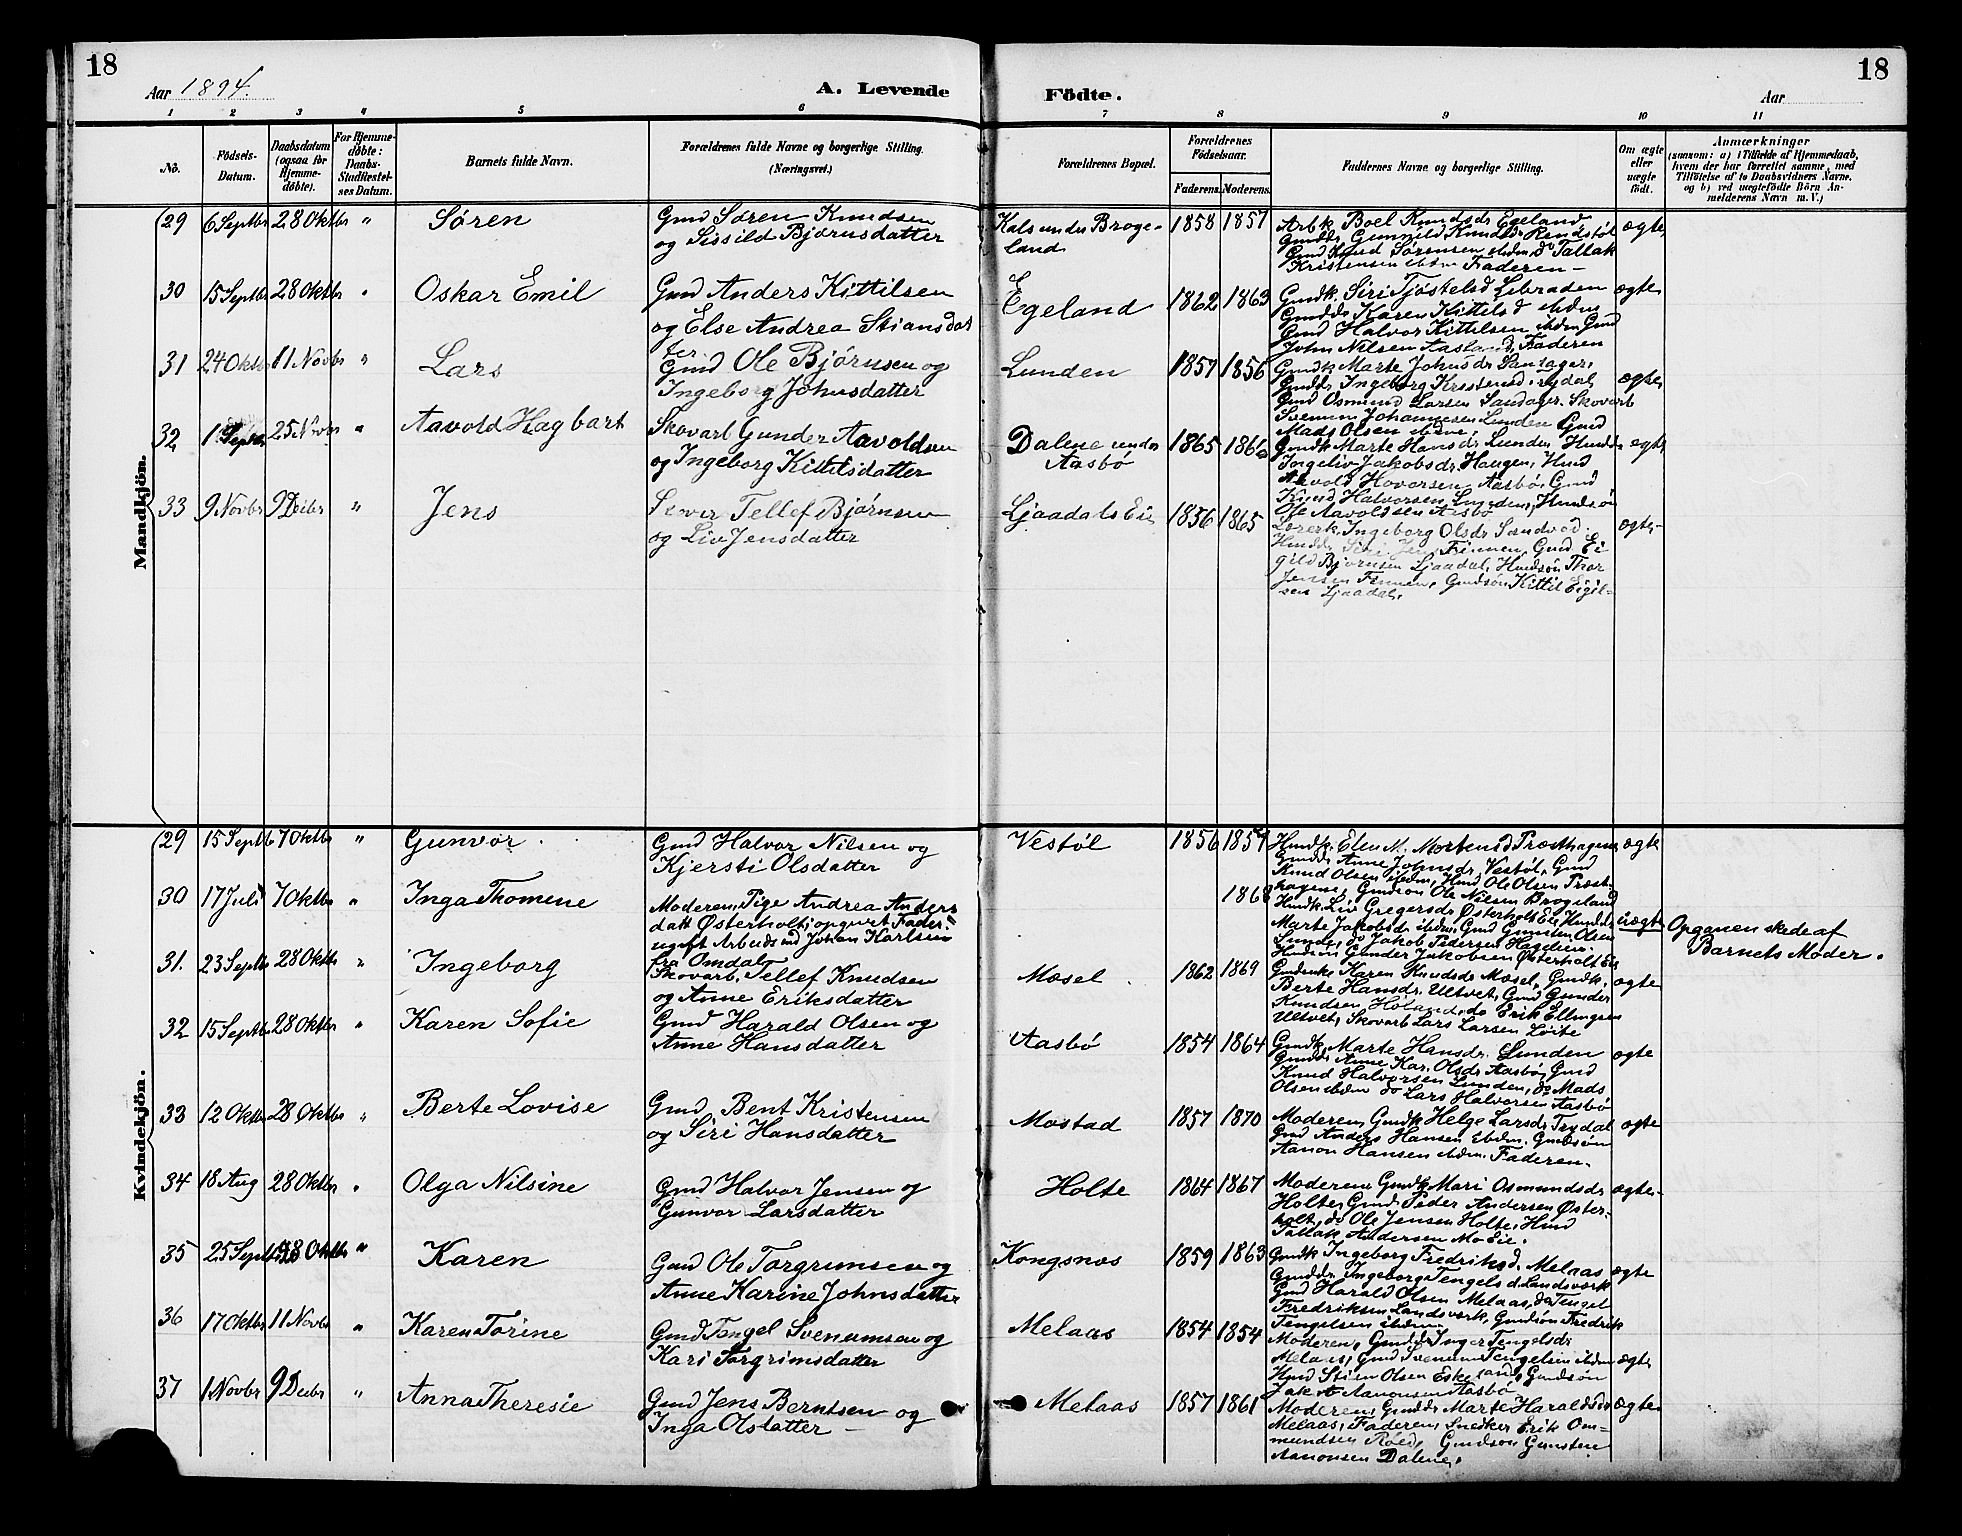 18
Aar 1894.
A. Levende
Födte.
Aar
18
1 2 3 4 5 6 7 8 9 10 11
No.
Födsels-
Datum.
Daabsdatum
(ogsaa for
Hjemme-
döbte).
For Hjemme-
döbte:
Daabs-
Stadfæstel-
ses Datum.
Barnets fulde Navn.
Forældrenes fulde Navne og borgerlige Stilling.
(Næringsvei.)
Forældrenes Bopæl.
Forældrenes
Födselsaar.
Faderens. Moderens.
Faddernes Navne og borgerlige Stilling.
Om ægte
eller
uægte
födt.
Anmærkninger
(saasom: a) i Tilfælde af Hjemmedaab,
hvem der har forrettet samme, med
Tilföielse af to Daabsvidners Navne,
og b) ved uægtefödte Börn An-
melderens Navn m. V.)
Mandkjön.
29 6 Septbr 28 Oktbr " Søren
Gmd Søren Knudsen
og Sissild Bjørnsdatter
Kals under Brøge-
land
1858 1857
Arbk. Boel Knudsdr Egeland
Gmdd. Gunnild Knudsdr
Gmd Knud Sørensen ibdm do Tallak
Kristensen ibdm Faderen -
ægte
30 15 Septbr 28 Oktbr " Oskar Emil
Gmd Anders Kittilsen
og Else Andrea Stiansdat
ter
Egeland
1862 1863
Gmdk. Siri
Gmdd. Karen Kittilsd ibdm
Gmd Halvor Kittelsen ibdm Gmd
John Nilsen Aasland, Faderen
ægte
31 24 Oktbr 11 Novbr " Lars
Gmd Ole Bjørnsen og
Ingeborg Johnsdatter
Lunden
1857 1856
Gmdk Marte Johnsdr Sandager,
Gmdd. Ingeborg
Gmd Osmund Larsen Sandager. Skovarb
Svenum Johannesen Lunden Gmd
Mads Olsen ibdm.
ægte
32 1 Septbr 25 Novbr " Aavold Hagbart
Skovarb Gunder Aavoldsen
og Ingeborg Kittilsdatter
Dalene under
Aasbø
1865
Gmdk Marte Hansdr Lunden, Husdd.
Ingeliv Jakobsdr Haugen, Husd
Aavold Hovorsen Aasbø, Gmd
Knud Halvorsen Lunden, Husdsøn
Ole Aavoldsen Aasbø
ægte
33 9 Novbr 9 Decbr " Jens
Tellef Bjørnsen
og Liv Jensdatter
Ljaadals Eie
1856 1865
Lærerk. Ingeborg Olsdr
Husdd. Siri Jens Finnen, Gmd Ei
gild Bjørnsen Ljaadal, Husdsøn Thor
Jensen Finnen, Gmdsøn Kittil Eigil-
sen Ljaadal.
ægte
Kvindekjön.
29 15 Septb 7 Oktbr " Gunvor
Gmd Halvor Nilsen og
Kjersti Olsdatter
Vestøl
1856 1857
Husdk. Elen M. Mortensd Præsthagene
Gmdd. Anne Johnsdr. Vestøl, Gmd
Knud Olsen ibdm, Husd Ole Olsen Præst-
hagene, Gmdsøn Ole Nilsen Brøgeland
ægte
30 17 Juli 7 Oktbr " Inga Thomine
Moderen, Pige Andrea Anders
datt Østerholt; opgivet Fader:
ugift Arbeidsmd Johan Karlsen
fra Omdal
1868
Husdk. Liv Gregersdr Østerholt Eie Husdd
Marte Jakobsdr ibdm, Gmd Gunsten Olsen
Lunde, do Jakob Pedersen Hagelien.
Husdsøn Gunder Jakobsen Østerholt Eie
uægte
Opgaven skede af
Barnets Moder.
31. 23 Septb 28 Oktbr " Ingeborg
Skovarb. Tellef Knudsen
og Anne Eriksdatter
Mæsel
1862 1869
Gmdenke Karen Knudsdr Mæsel, Gmdk.
Berte Hansdr. Ultvet, Gmd Gunder
Knudsen Høland, do Erik Ellingsen
Ultvet, Skovarb Lars Larsen Løite
ægte
32 15 Septbr 28 Oktbr " Karen Sofie
Gmd Harald Olsen og
Anne Hansdatter
Aasbø
1854 1864
Gmdk. Marte Hansdr. Lunden
Gmdd. Anne Kar. Olsdr Aasbø, Gmd
Knud Halvorsen Lunden, do Mads
Olsen ibdm do Lars Halvorse Aasbø
ægte
33 12 Oktbr 28 Oktbr " Berte Lovise
Gmd Bent Kristensen
og Siri Hansdatter
Mostad
1857 1870
Moderen, Gmdk Helge Larsdr Trydal
Gmd Anders Hansen Ebdm. Gmdsøn
Aanon Hansen ibdm. Faderen.
ægte
34 18 Aug 28 Oktbr " Olga Nilsine
Gmd Halvor Jensen og
Gunvor Larsdatter
Holte
1864 1867
Moderen, Gmdk Mari Osmundsdr
Holte, Gmd Peder Andersen Øster-
holt, do Ole Jensen Holte, Husd
Tallak Andersen Mo Eie.
ægte
35 25 Septbr 28 Oktbr " Karen
Gmd Ole Torgrimsen og
Anne Karine Johnsdatter
Kongsnæs
1859 1863
Gmdk Ingeborg Fredriksd. Melaas
Gmdd. Ingeborg Tengels d. Landsværk
Gmd Harald Olsen Melaas, do Tengel
Fredriksen Landsverk, Gmdsøn Fredrik
Tengelsen ibdm.
ægte
36 17 Oktbr 11 Novbr " Karen Torine
Gmd Tengel Svenumsen og
Kari Torgrimsdatter
Melaas
1854 1854
Moderen, Gmdd Inger Tengelsdr
Melaas, Gmd Svenum Tengelsen ibdm
Husd Stien Olsen Eskeland, Gmdsøn
Jak A Aanonsen Aasbø
ægte
37 1 Novbr 9 Decbr " Anna Theresie
Gmd Jens Berntsen og
Inga Olsdatter -
Melaas
1857 1861
Moderen, Gmdd. Marte Haraldsdr
Melaas, Faderen, Snedker Erik Om-
mundsen Røed, Gmdsøn Gunsten
Aanonsen Dalene.
ægte